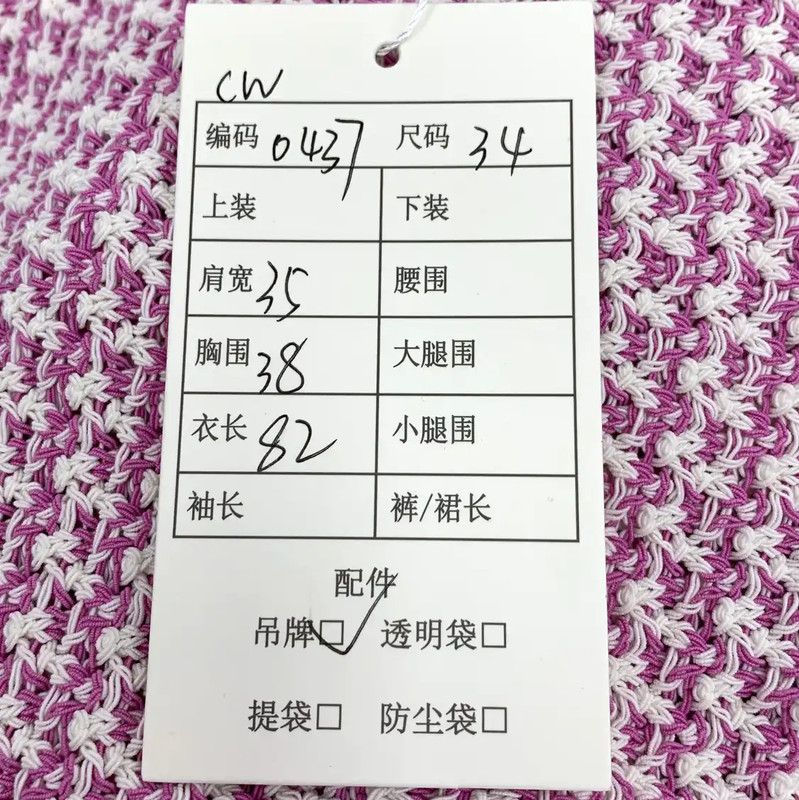 CW
编码 0437 尺码 34
上装 下装
肩宽 35 腰围
胸围 38 大腿围
衣长 82 小腿围
袖长 裤/裙长
配件
吊牌☑ 透明袋□
提袋□ 防尘袋□